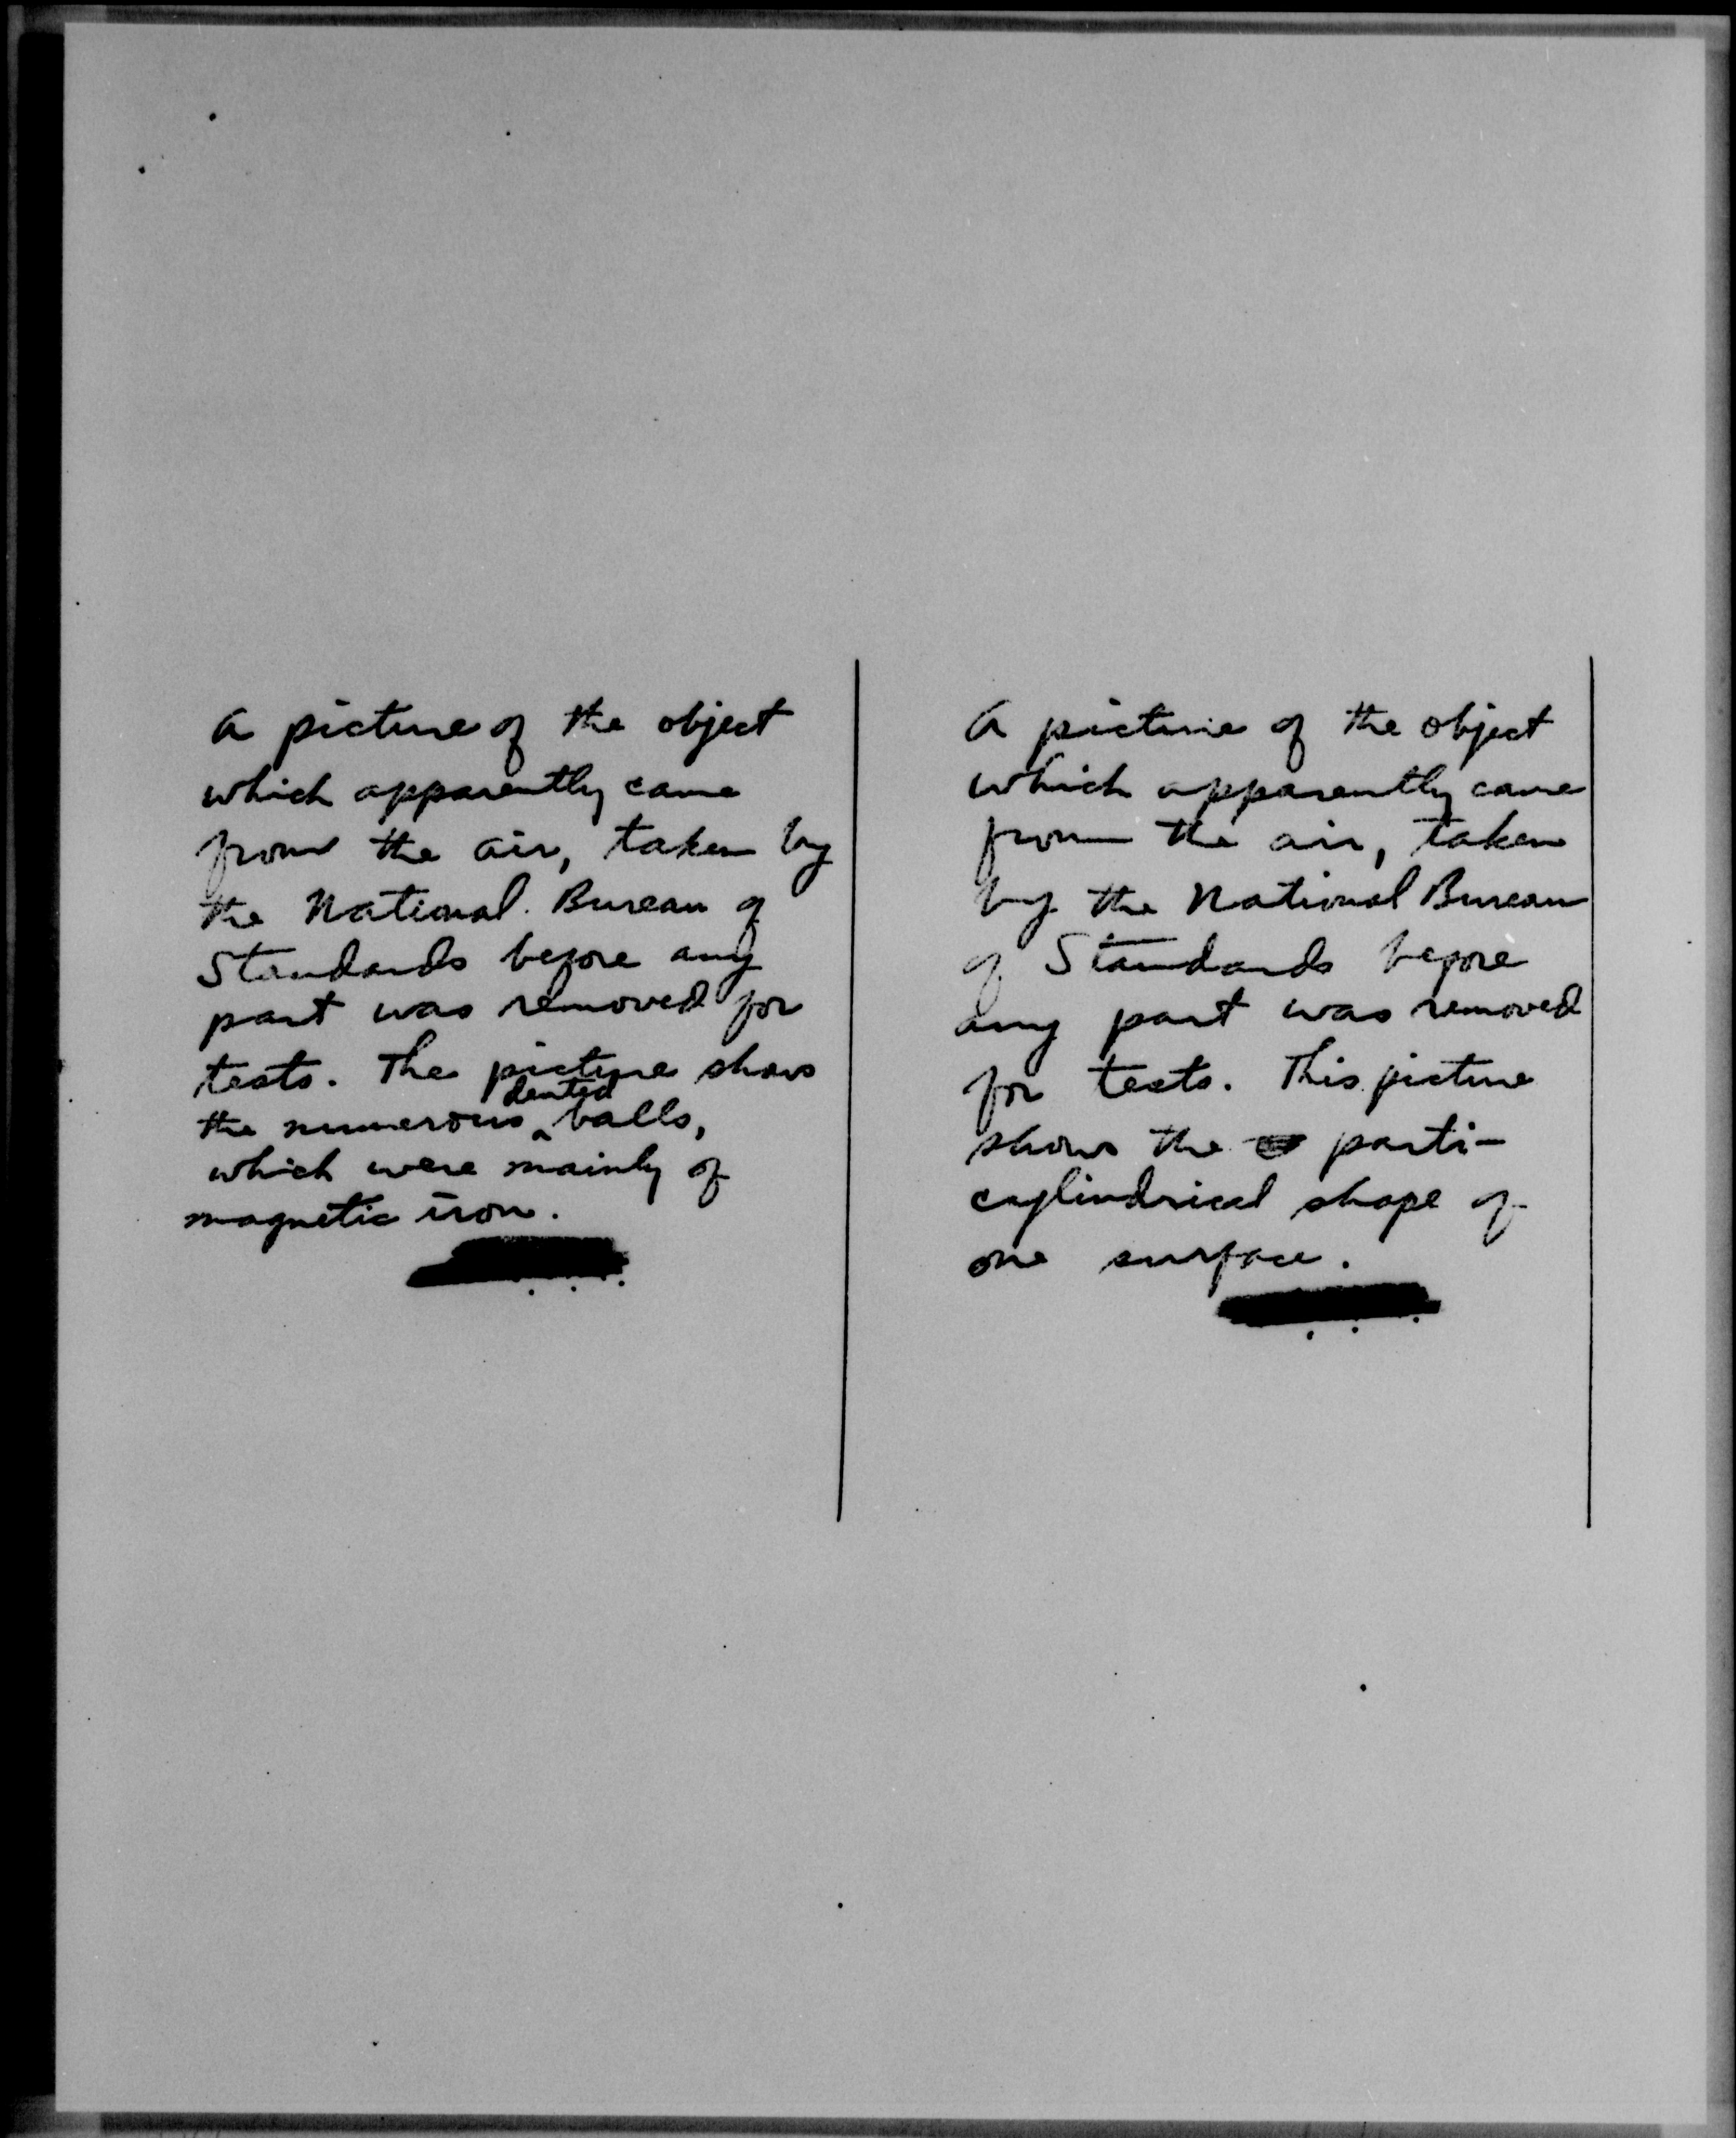 A picture of the object
which apparently came
from the air, taken by
the National Bureau of
Standards before any
part was removed for
tests. The picture shows
the numerous dented balls,
which were mainly of
magnetic iron.
A picture of the object
which apparently came
from the air, taken
by the National Bureau
of Standards before
any part was removed
for tests. This picture
shows the parti-
cylindrical shape of
one surface.